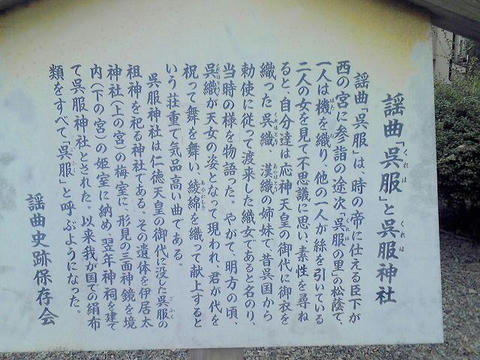 謡曲「呉服」と呉服神社
謡曲「呉服」は、時の帝に仕える臣下が
西の宮に参詣の途次、呉服の里の松蔭で、
一人は機を織り、他の一人が絲を引いている
二人の女を見て不思議に思い、素性を尋ね
ると、自分達は応神天皇の御代に御衣を
織った呉織、漢織の姉妹で、昔呉国から
勅使に従って渡来した織女であると名のり、
当時の様を物語った。やがて、明方の頃、
呉織が天女の姿となって現われ、君が代を
祝って舞を舞い、綾綿を織って献上すると
いう荘重で気品高い曲である。
呉服神社は仁徳天皇の御代に没した呉服の
祖神を祀る神社である。その遺体を伊居太
神社(上の宮)の梅室に、形見の三面神鏡を境
内(下の宮)の姫室に納め、翌年神祠を建
て呉服神社とされた。以来我が国での絹布
類をすべて、「呉服」と呼ぶようになった。
謡曲史跡保存会